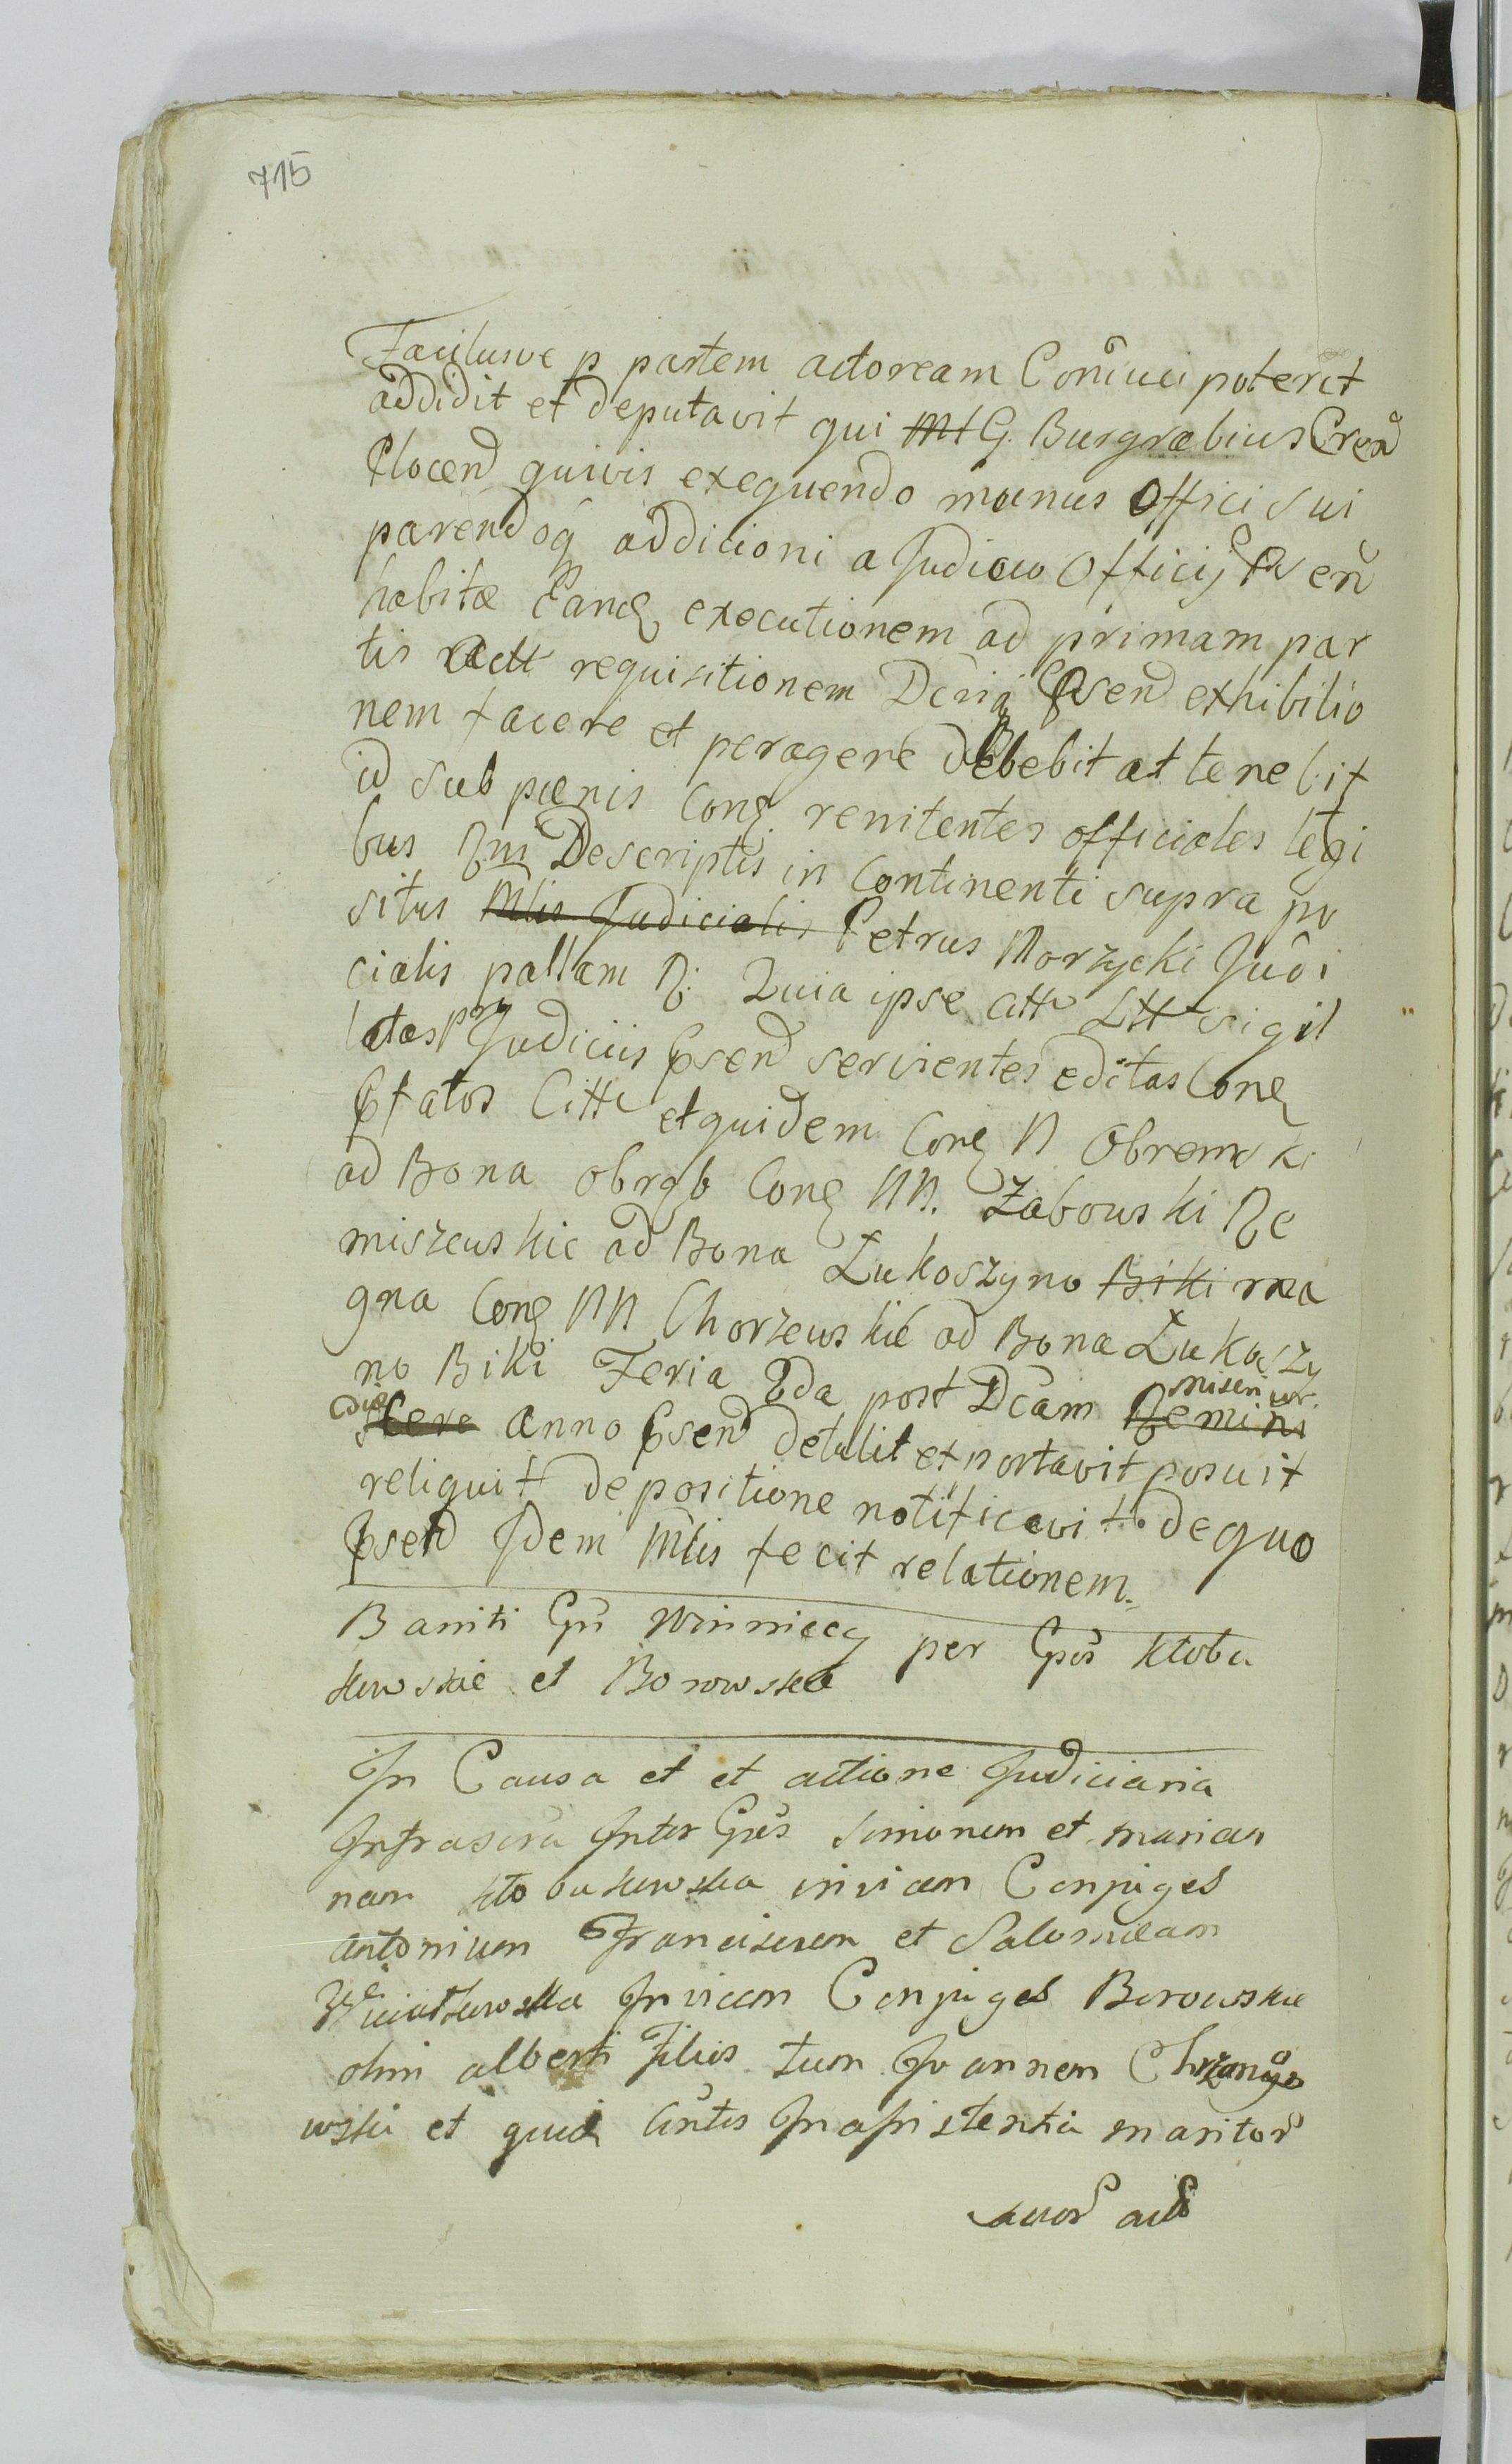 715
Faciliusve p partem actoream Convici poterit
addidit et deputavit qui G. Burgrabius Cren
Plocen quivis exequendo munus Offici sui
parendoq addicioni a Judicio Officij Psen
habitæ Eanq executionem ad primam par
tis Actt requisitionem Dcriq Psen exhibitio
nem facere et peragere debebit at tenebit
id sub pænis Conq renitentes officiales legi
bus Rni Descriptis in Continenti supra po
situs Mlis Judicialis Petrus Morzycki Judi
cialis pallam R: Quia ipse Citt Litt sigil
latas pro Judiciis Psen servientes editas Conq
Pfatos Citti et quidem Conq N Obremski
ad Bona Obrąb Conq NN. Zabowski Re
miszewskie ad Bona Łukoszyno Biki ma
gna Conq NN Chorzewskie ad Bona Łukoszy
no Biki Feria 2da post Dcam Remini
misericor
diæ scere Anno Psen detulit et portavit posuit
reliquit depositione notificavit de quo
Psen Idem Mlis fecit relationem.
Banniti Gn Winniccy per Gnos Kłobu
kowskie et Borowskie
In Causa et et actione Judiciaria
Infrascra Inter Gnos Simonem et marian
nam Kłobukowska invicem Conjuges
Antonium Franciscum et Salomeam
Invicem Conjuges Borowskie
olim Alberti Filios tum Joannem Chrzano
wski et quidem Inassistentia maritor
suor